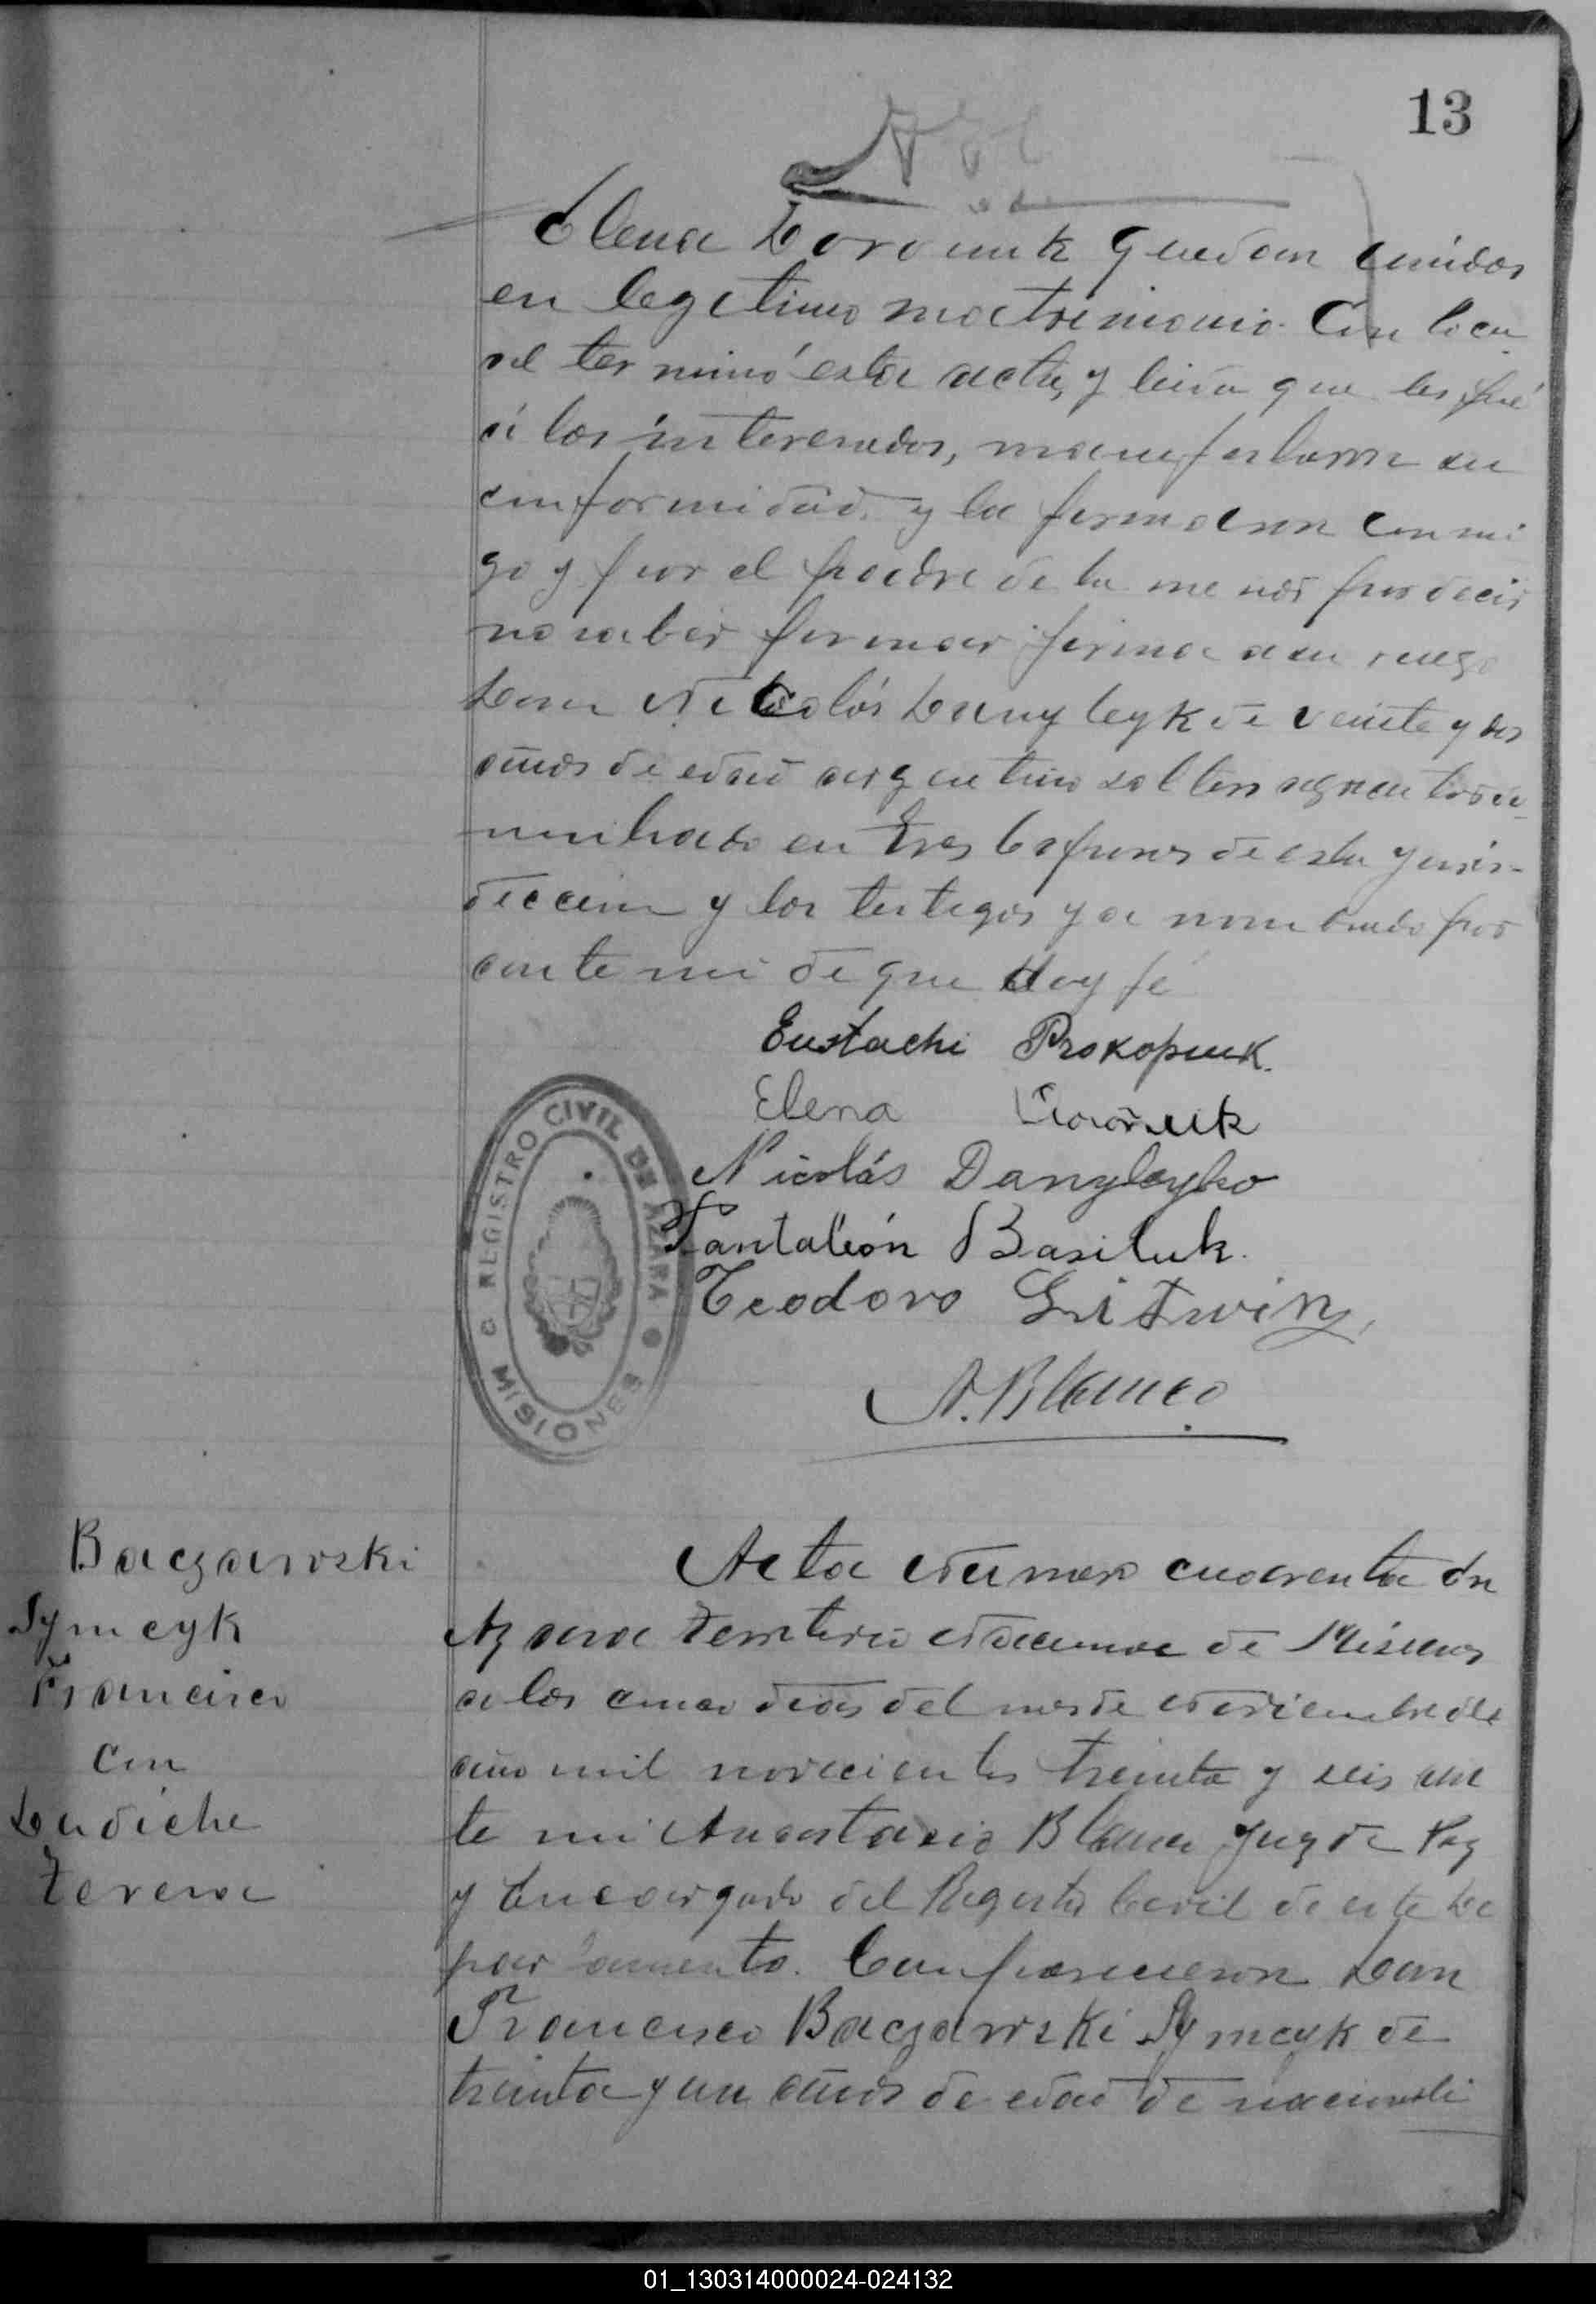 13
Elena Doroniuk quedan unidos
en legitimo matrimonio. Con lo cu
al terminó esta acta, y leida que les fué
á los interesados, manifestaron su
conformidad, y la firmaron conmi
go y por el padre de la menor por decir
no saber firmar firma a su ruego
Don Nicolás Danyleyk de veinte y dos
años de edad argentino soltero agricultor do
miciliado en Tres Capones de esta juris-
diccion y los testigos ya nombrado por
ante mi de que doy fé
Eustachi Prokopiuk.
Elena
Nicolás Danyleyko
Pantaleón Basiluk.
Teodoro Litwin,
A. Blanco
REGISTRO CIVIL DE AZARA
MISIONES
Baczawski
Symcyk
Francisco
con
Ludiche
Teresa
Acta Numero cuarenta En
Azara Territorio Nacional de Misiones
a los cinco dias del mes de Noviembre del
año mil novecientos treinta y seis an
te mi Anastacio Blanco Juez de Paz
y Encargado del Registro Civil de este De
partamento. Comparecieron Don
Francisco Baczawski Symcyk de
treinta y un años de edad de nacionali
01_130314000024-024132